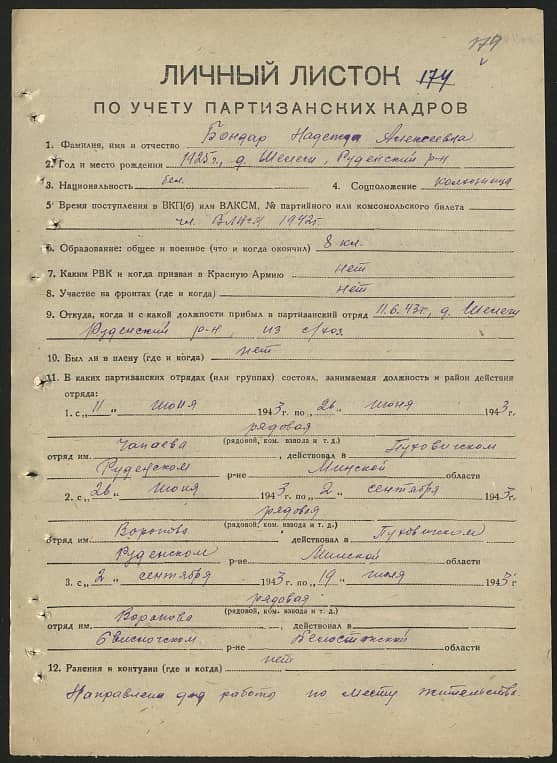 179
ЛИЧНЫЙ ЛИСТОК 174
ПО УЧЕТУ ПАРТИЗАНСКИХ КАДРОВ
1. Фамилия, имя и отчество Бондар Надежда Алексеевна
2. Год и место рождения 1925г., д. Шелеги, Руденский р-н
3. Национальность бел. 4. Соцположение колхозница
5. Время поступления в ВКП(б) или ВЛКСМ, № партийного или комсомольского билета
чл. ВЛКСМ 1942г.
6. Образование: общее и военное (что и когда окончил) 8 кл.
7. Каким РВК и когда призван в Красную Армию нет
8. Участие на фронтах (где и когда) нет
9. Откуда, когда и с какой должности прибыл в партизанский отряд 11.6.43г., д. Шелеги
Руденский р-н, из с/хоз.
10. Был ли в плену (где и когда) нет
11. В каких партизанских отрядах (или группах) состоял, занимаемая должность и район действия
отряда:
1. с „11“ июня 1943 г. по „26“ июня 1943 г.
рядовая
(рядовой, ком. взвода и т. д.)
отряд им. Чапаева, действовал в Пуховичском
Руденском р-не Минской области
2. с „26“ июня 1943 г. по „2“ сентября 1943 г.
рядовая
(рядовой, ком. взвода и т. д.)
отряд им. Воронова, действовал в Пуховичском
Руденском р-не Минской области
3. с „2“ сентября 1943 г. по „19“ июля 194 г.
рядовая
(рядовой, ком. взвода и т. д.)
отряд им. Воронова, действовал в
р-не Белостокской области
12. Ранения и контузии (где и когда) нет
Направлена для работы по месту жительства.